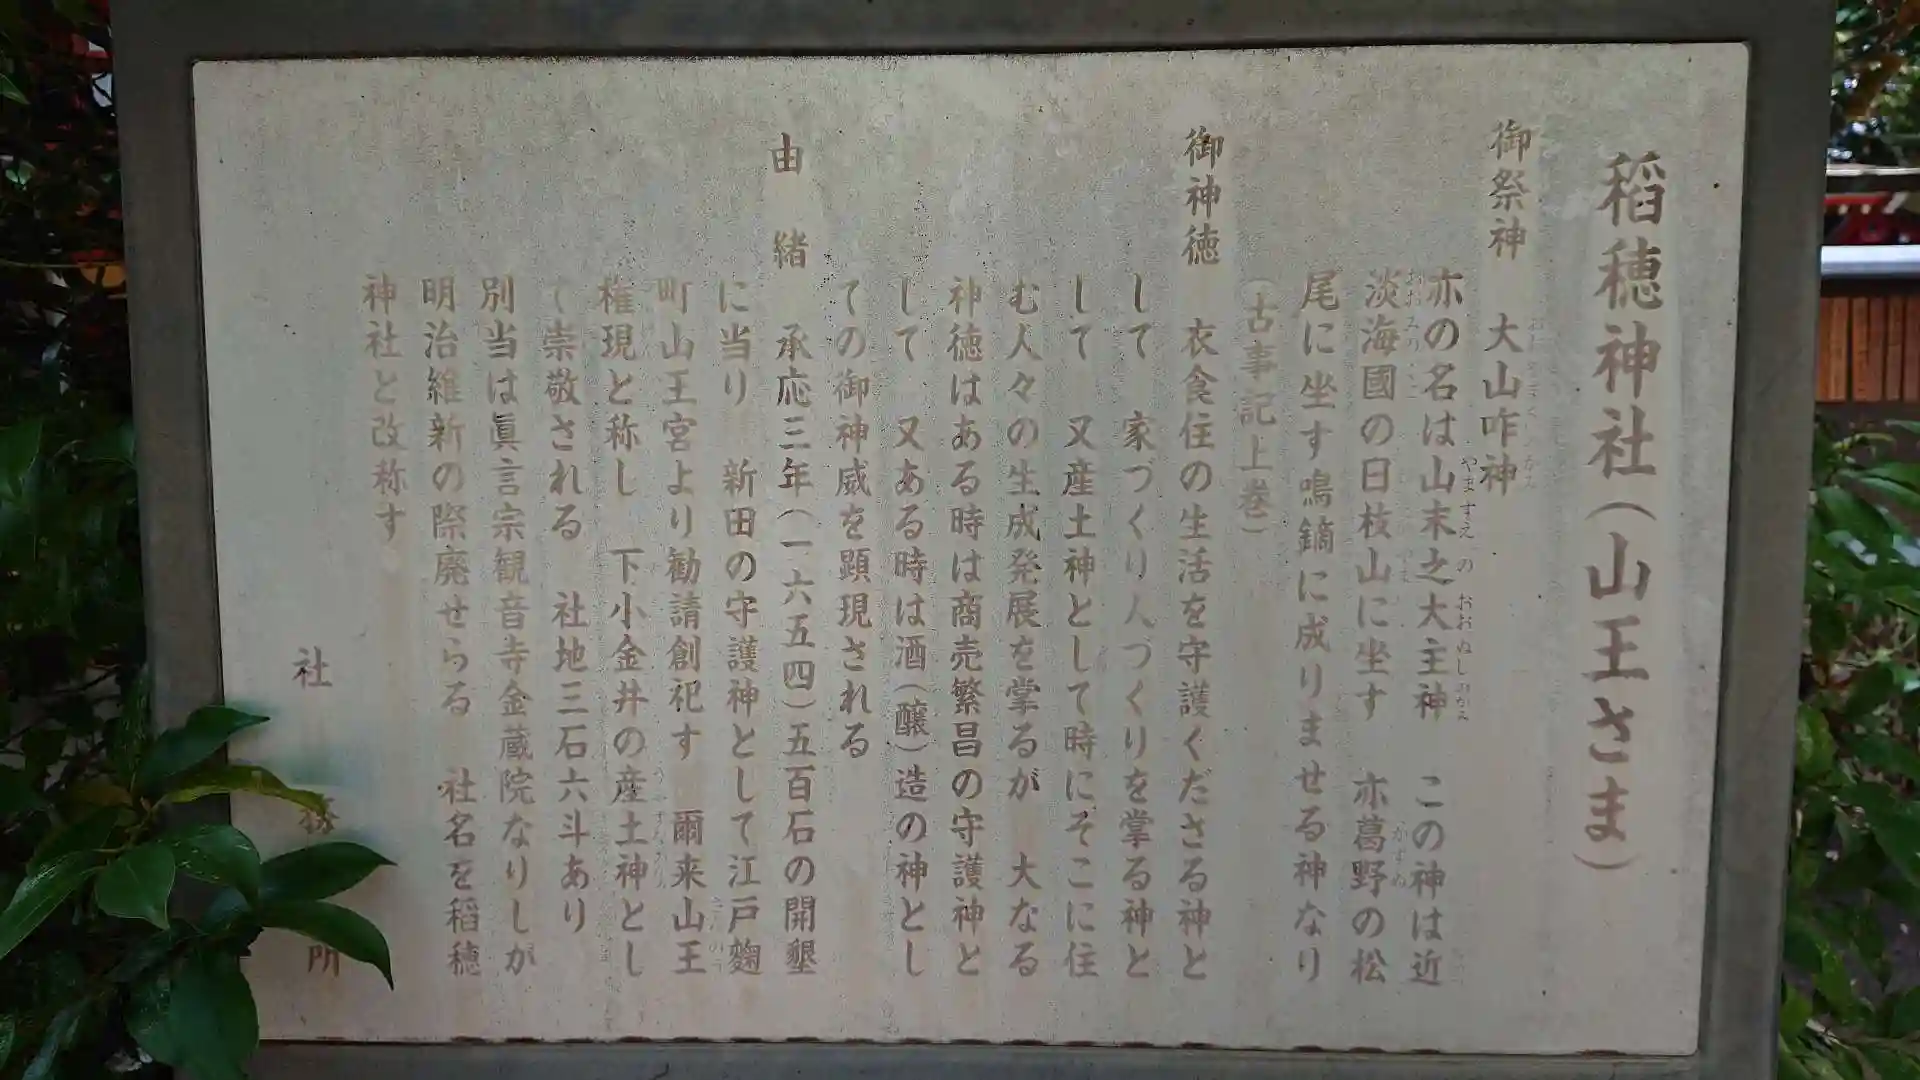 稲穂神社（山王さま）
御祭神　大山咋神
亦の名は山末之大主神　この神は近
淡海國の日枝山に坐す　亦葛野の松
尾に坐す鳴鏑に成りませる神なり
（古事記上巻）
御神徳　衣食住の生活を守護くださる神と
して　家づくり人づくりを掌る神と
して　又産土神として時にそこに住
む人々の生成発展を掌るが　大なる
神徳はある時は商売繁昌の守護神と
して　又ある時は酒（醸）造の神とし
ての御神威を顕現される
由緒　承応三年（一六五四）五百石の開墾
に当り　新田の守護神として江戸麹
町山王宮より勧請創祀す　爾来山王
権現と称し　下小金井の産土神とし
て崇敬される　社地三石六斗あり
別当は眞言宗観音寺金蔵院なりしが
明治維新の際廃せらる　社名を稲穂
神社と改称す
社務所